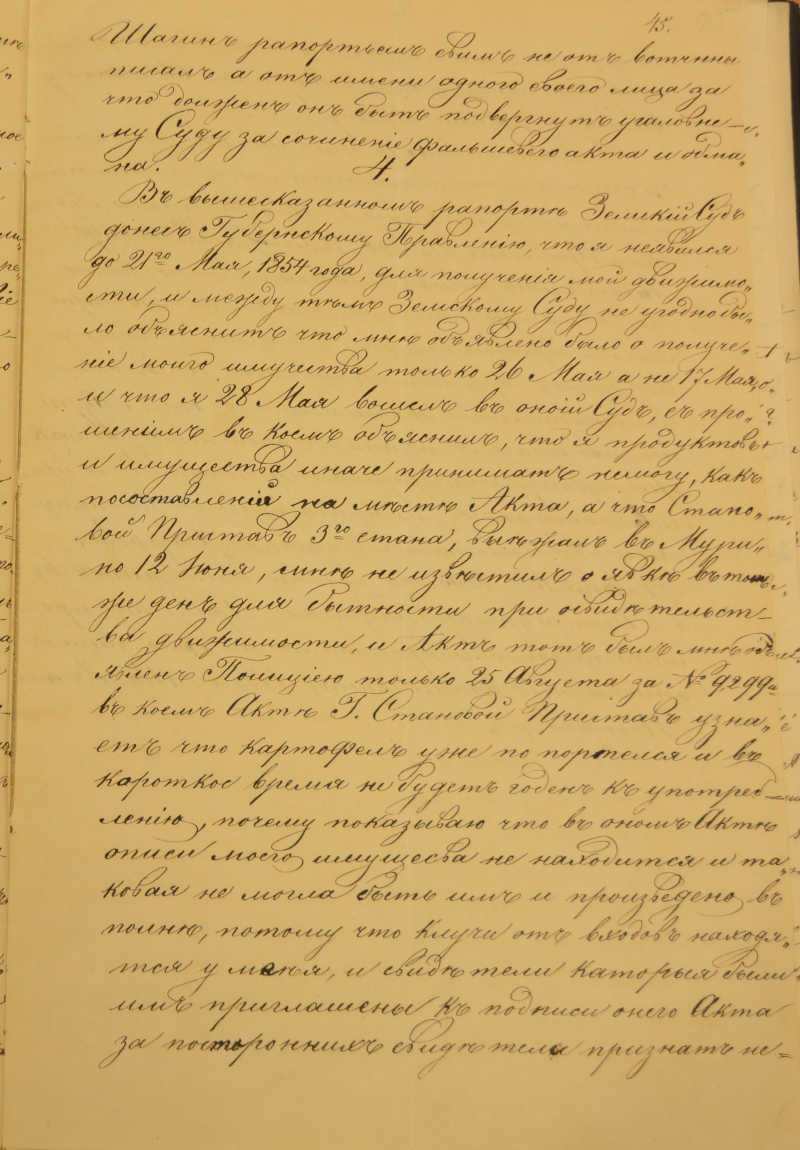 45.
Шагинъ рапортъемъ свимъ не отъ вотчины
писалъ а отъ имени одного своего лица за
что долженъ онъ быть подвергнутъ уголовно-
му Суду за сочиненіе фальшеваго акта и обма„
на.
4.
Въ вышесказанномъ рапортѣ Земскій Судъ
донесъ Губернскому Правленію, что я неявился
до 21го Мая, 1854 года, для полученія мой движимо„
сти, и между тѣмъ Земскому Суду не угодно бы„
ло объяснить что мнѣ объявлено было о получе„
ніе моиго имучества только 26 Мая а не 17 Мая,
и что я 28 Мая вошелъ въ оной Судъ, съ про„
шеніемъ въ коемъ объяснилъ, что я продуктовъ
и имущества иначе принимать немогу, какъ
посоставленій на мѣстѣ Акта, а что Стано„
вой Приставъ 3го стана, выѣжалъ въ Мури„
но 12 Іюня, мнѣ не извѣстилъ о явкѣ въ тотъ
же день для бытности при освидѣтельст-
ва движимости, и Актъ тотъ былъ мнѣ объ
явленъ Полиціею только 25 Августа за № 9299м
въ коемъ Актѣ Г. Становой Приставъ узна„
етъ что картофель уже по портелся и въ
короткое время не будетъ годенъ къ употреб-
ленію, почему показываю что въ ономъ Актѣ
описи моего имущесва не находится и та„
ковая не могла быть имъ и произведено въ
полнѣ, потому что ключи отъ входовъ находя„
тся у меня, и свидѣтели каторыя были
имъ приглашены къ подписи онего Акта
за постороннихъ свидѣтели признать не=